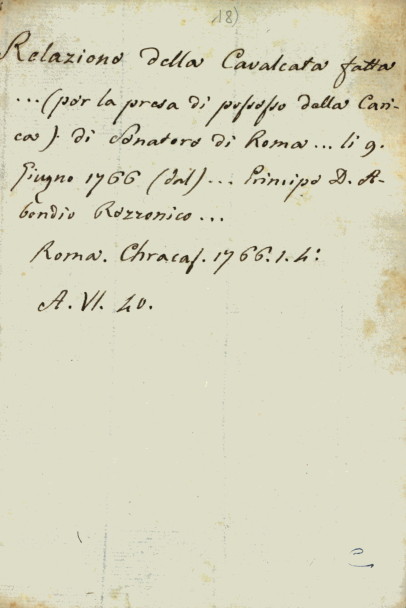 18)
Relazione della Cavalcata fatta
...(per la presa di possesso della Cari-
ca) di Senatore di Roma... li 9.
Giugno 1766 (dal)... Principe D. A-
bondio Rezzonico...
Roma. Chracas. 1766. 1. 4:
A. VI. 40.